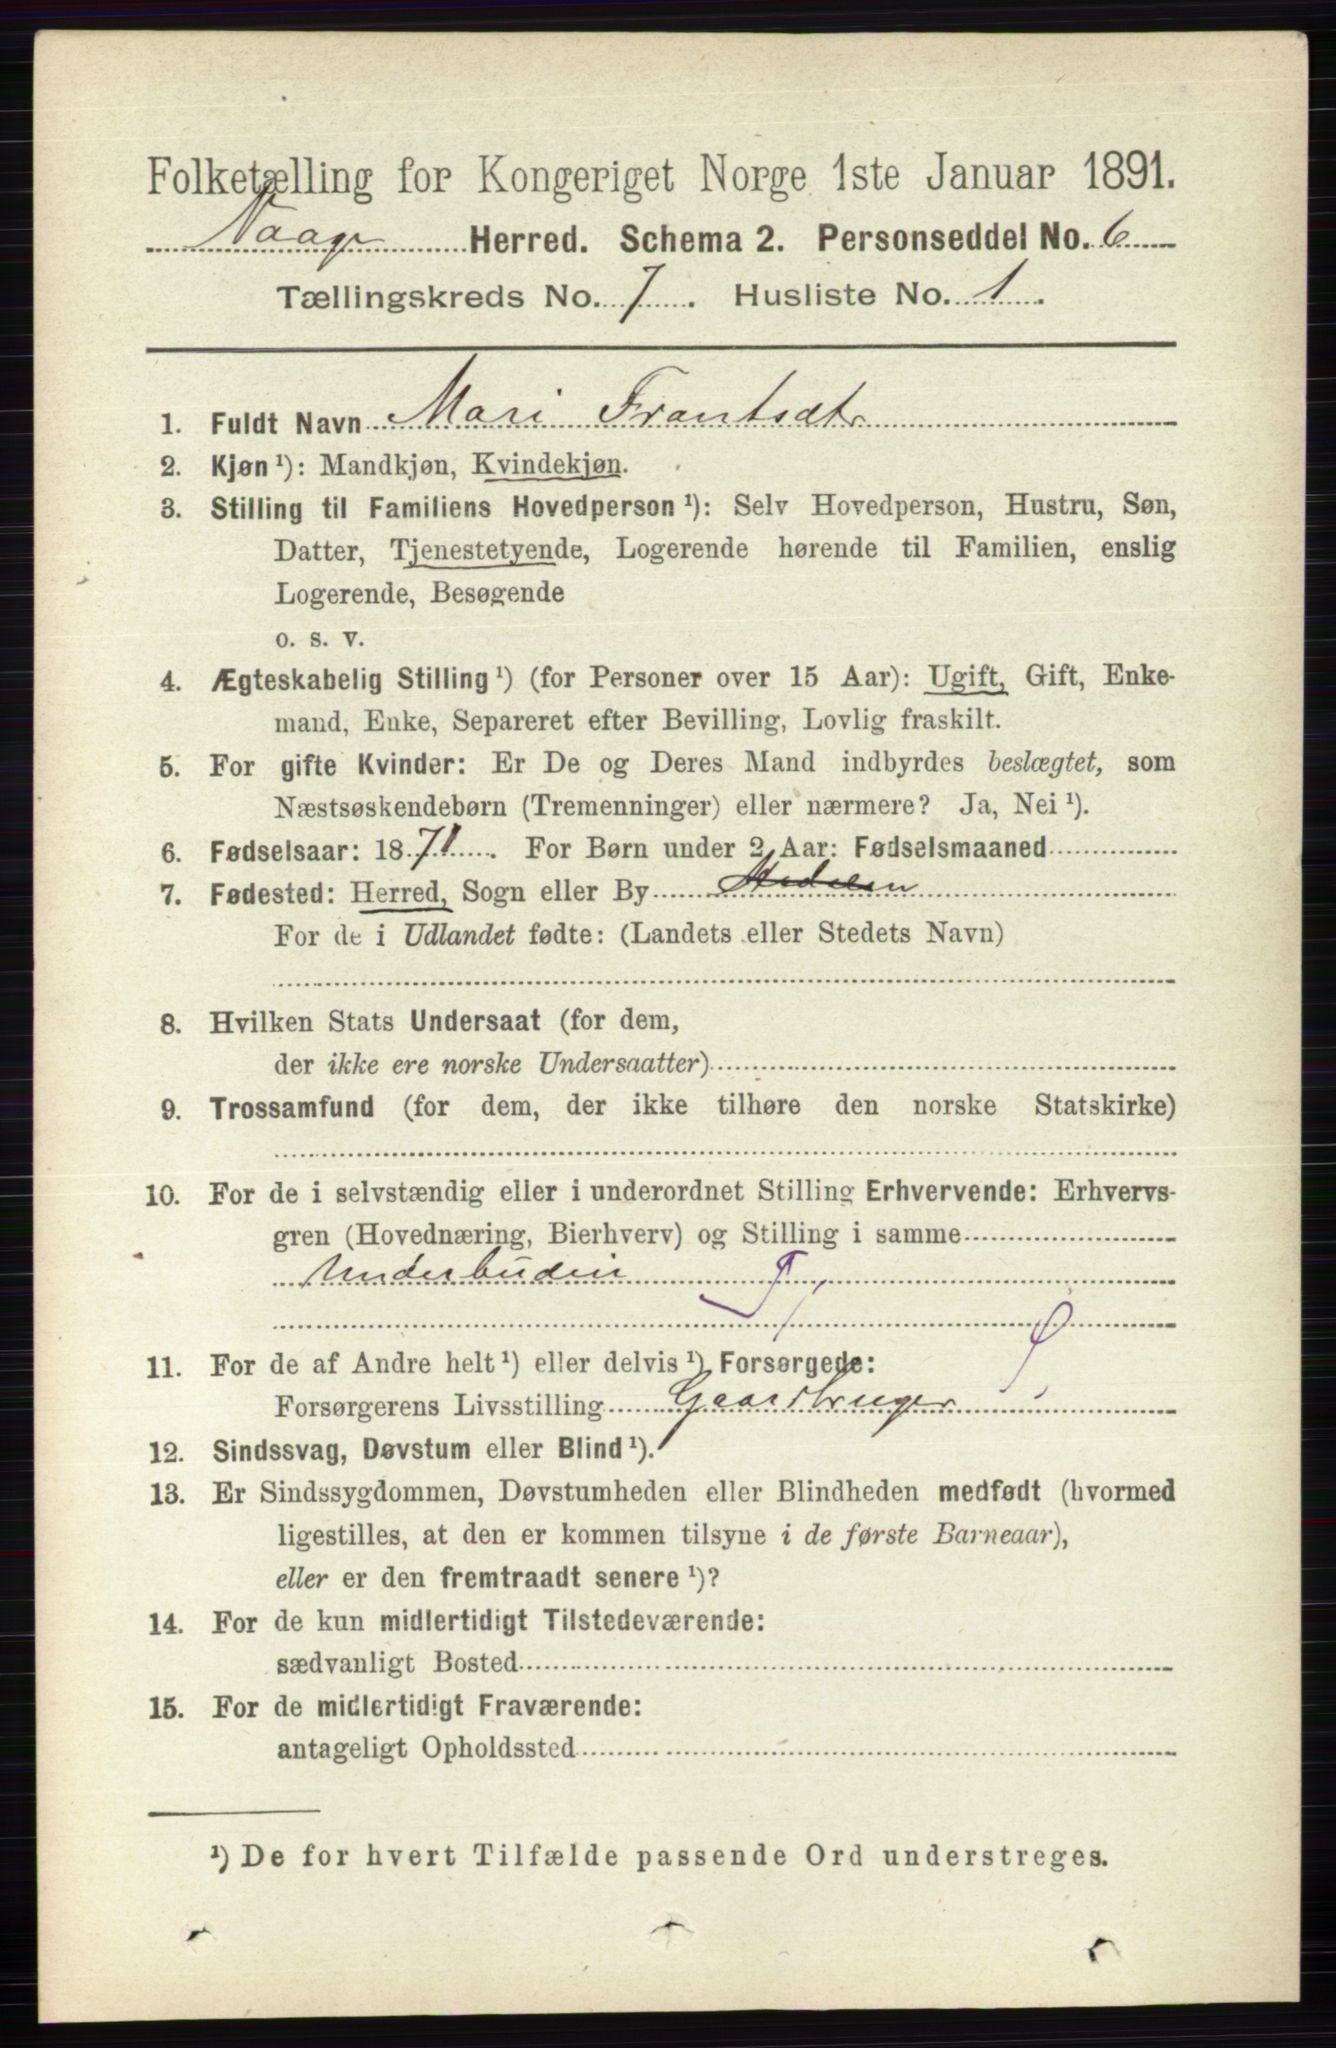 Folketælling for Kongeriget Norge 1ste Januar 1891.
Vaage Herred. Schema 2. Personseddel No. 6
Tællingskreds No. 7. Husliste No. 1.
1. Fuldt Navn Mari Frantsdtr
2. Kjøn ¹): Mandkjøn, Kvindekjøn.
3. Stilling til Familiens Hovedperson ¹): Selv Hovedperson, Hustru, Søn,
Datter, Tjenestetyende, Logerende hørende til Familien, enslig
Logerende, Besøgende
o. s. v.
4. Ægteskabelig Stilling ¹) (for Personer over 15 Aar): Ugift, Gift, Enke-
mand, Enke, Separeret efter Bevilling, Lovlig fraskilt.
5. For gifte Kvinder: Er De og Deres Mand indbyrdes beslægtet, som
Næstsøskendebørn (Tremenninger) eller nærmere? Ja, Nei ¹).
6. Fødselsaar: 1871. For Børn under 2 Aar: Fødselsmaaned
7. Fødested: Herred, Sogn eller By
For de i Udlandet fødte: (Landets eller Stedets Navn)
8. Hvilken Stats Undersaat (for dem,
der ikke ere norske Undersaatter)
9. Trossamfund (for dem, der ikke tilhøre den norske Statskirke)
10. For de i selvstændig eller i underordnet Stilling Erhvervende: Erhvervs-
gren (Hovednæring, Bierhverv) og Stilling i samme
Underbudeie
11. For de af Andre helt ¹) eller delvis ¹) Forsørgede:
Forsørgerens Livsstilling Gaardbruger
12. Sindssvag, Døvstum eller Blind ¹).
13. Er Sindssygdommen, Døvstumheden eller Blindheden medfødt (hvormed
ligestilles, at den er kommen tilsyne i de første Barneaar),
eller er den fremtraadt senere ¹)?
14. For de kun midlertidigt Tilstedeværende:
sædvanligt Bosted
15. For de midlertidigt Fraværende:
antageligt Opholdssted
¹) De for hvert Tilfælde passende Ord understreges.